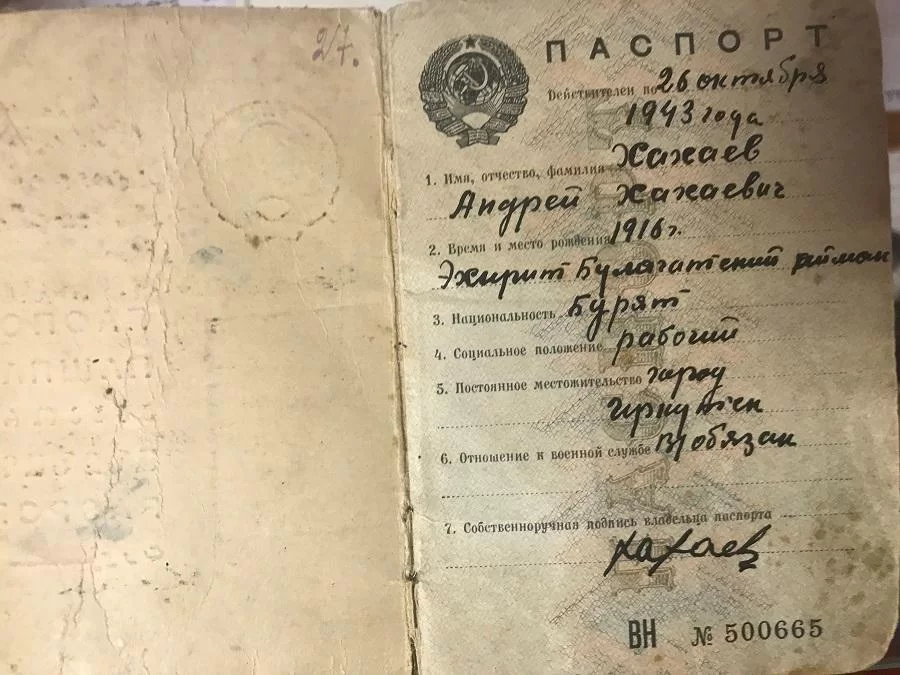 27.
ПАСПОРТ
Действителен по 26 октября
1943 года
1. Имя, отчество, фамилия Хахаев
Андрей Хахаевич
2. Время и место рождения 1916 г.
Эхирит Булагатский аймак
3. Национальность Бурят
4. Социальное положение рабочий
5. Постоянное местожительство город
Иркутск
6. Отношение к военной службе В/обязан
7. Собственноручная подпись владельца паспорта
Хахаев
ВН № 500665